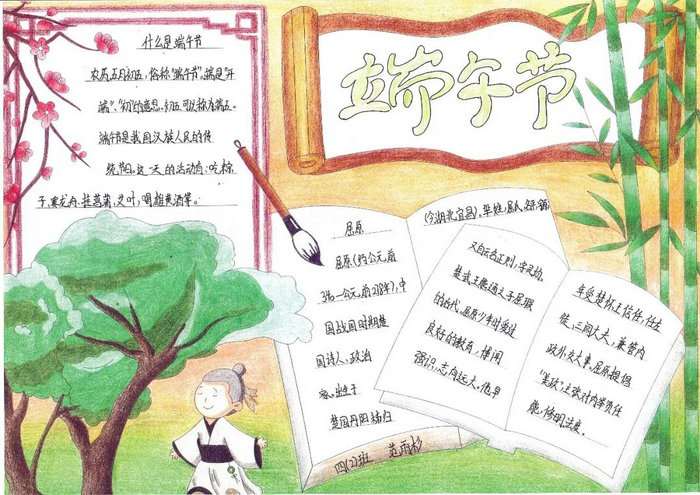 端午节
什么是端午节
农历五月初五,俗称"端午节",端是"开
端"、"初"的意思,初五可以称为端五。
端午节是我国汉族人民的传
统节日,这一天的活动有:吃粽
子,赛龙舟,挂菖蒲,艾叶,喝雄黄酒等。
屈原
屈原(约公元前
340-公元前278年),中
国战国时期楚
国诗人、政治
家。出生于
楚国丹阳秭归
(今湖北宜昌),芈姓,屈氏,名平,
又自云名正则,字灵均,
楚武王熊通之子屈瑕
的后代。屈原少年时受过
良好的教育,博闻
强识,志向远大。他早
年受楚怀王信任,任左
徒、三闾大夫,兼管内
政外交大事。屈原提倡
"美政",主张对内举贤任
能,修明法度。
四(2)班 范雨杉